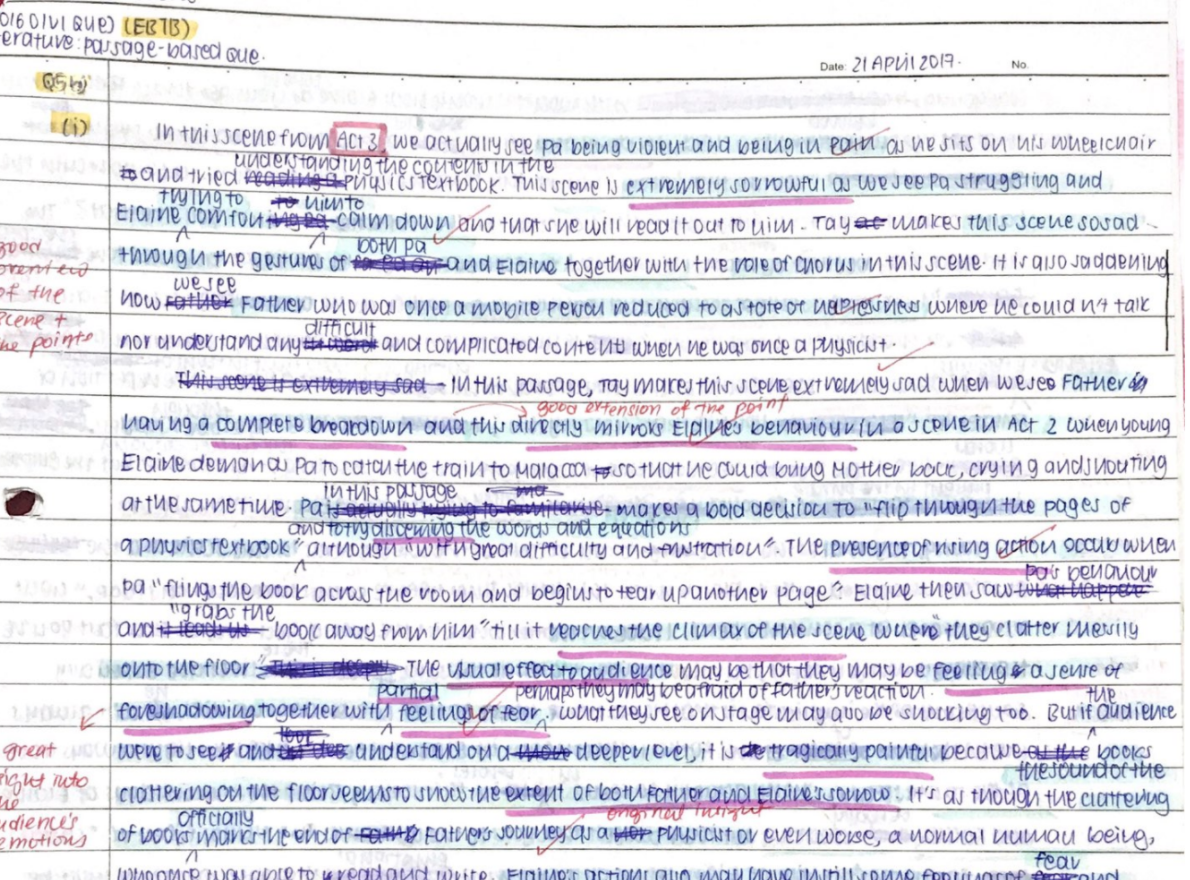 2016 DIVI QUE) (EBTB)
erature: passage-based que.
Date: 21 APril 2017. No.
Q5 b)
(i) In this scene from Act 3, we actually see Pa being violent and being in pain as he sits on his wheelchair
understanding the contents in the
and tried reading a physics textbook. This scene is extremely sorrowful as we see Pa struggling and
trying to him to
Elaine comforting calm down and that she will read it out to him. Tay makes this scene so sad
both pa
through the gestures of and Elaine together with the role of chorus in this scene. It is also saddening
good
overview
of the
scene +
the points
we see
how rather Father who was once a mobile person reduced to a state of helplessness where he couldn't talk
difficult
nor understand any and complicated contents when he was once a physicist.
This scene is extremely sad In this passage, Tay makes this scene extremely sad when we see Father is
good extension of the point
having a complete breakdown and this directly mirrors Elaine's behaviour in a scene in Act 2 when young
Elaine demands Pa to catch the train to Malacca so that he could bring Mother back, crying and shouting
in this passage
at the same time. Pa actually trying to makes a bold decision to "flip through the pages of
and to try discerning the words and equations
a physics textbook" although "with great difficulty and frustration". The presence of rising action occurs when
pa's behaviour
pa "flings the book across the room and begins to tear up another page". Elaine then saw what happens
"grabs the
and it leads us book away from him" till it reaches the climax of the scene where "they clatter heavily
onto the floor". This is The usual effect to audience may be that they may be feeling a sense of
partial perhaps they may be afraid of father's reaction.
foreshadowing together with feelings of fear, what they see on stage may also be shocking too. But if audience
the
great
were to see and understand on a deeper level, it is tragically painful because books
the sound of the
clattering on the floor seems to show the extent of both Father and Elaine's sorrow. It's as though the clattering
insight into
the
audience's
emotions
officially original insight
of books marks the end of Father's journey as a physicist or even worse, a normal human being,
fear
who once was able to read and write. Elaine's actions also may have instill some feelings of and